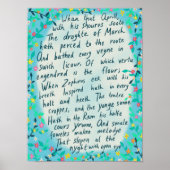 Whan that Aprille
with his shoures soote
The droghte of March
hath perced to the roote
And bathed every veyne in
swich licour Of which vertu
engendred is the flour
Whan Zephirus eek with his
breeth Inspired hath in every
holt and heeth The tendre
croppes, and the yonge sonne
Hath in the Ram his halve
cours yronne, And smale
foweles maken melodye
That slepen al the
nyght with open ye